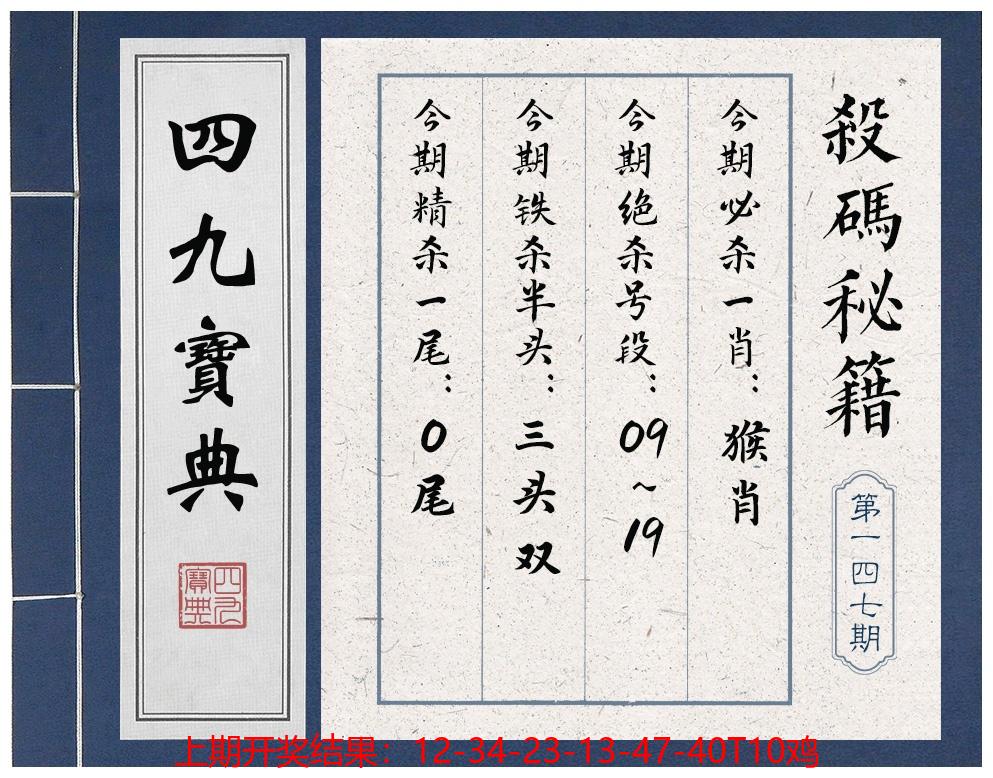 殺碼秘籍
第一四七期
今期必杀一肖：猴肖
今期绝杀号段：09~19
今期铁杀半头：三头双
今期精杀一尾：0尾
四九寶典
四九
寶典
上期开奖结果：12-34-23-13-47-40T10鸡